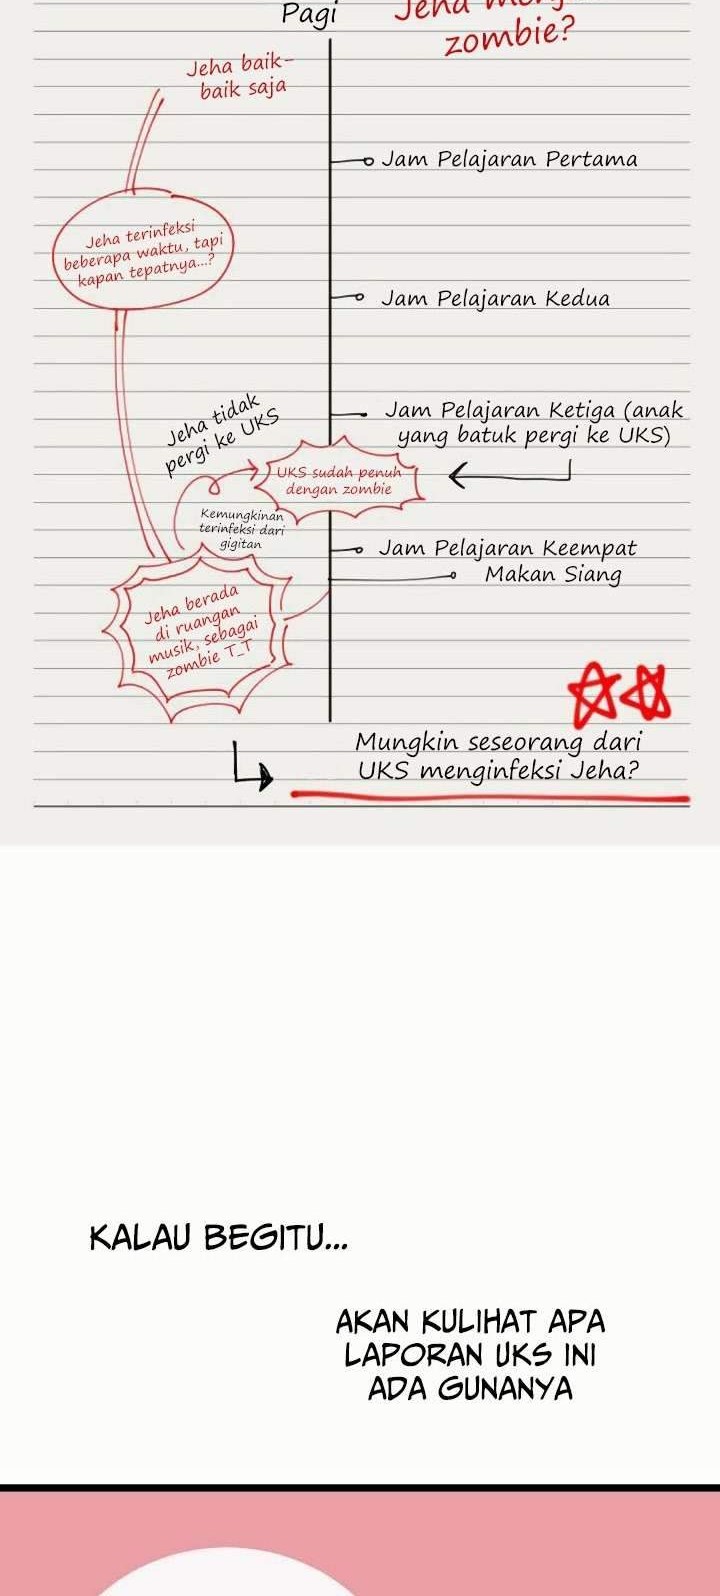 Pagi
Jeha
zombie?
Jeha baik-
baik saja
Jam Pelajaran Pertama
Jeha terinfeksi
beberapa waktu, tapi
kapan tepatnya...?
Jam Pelajaran Kedua
Jeha tidak
pergi ke UKS
Jam Pelajaran Ketiga (anak
yang batuk pergi ke UKS)
UKS sudah penuh
dengan zombie
Kemungkinan
terinfeksi dari
gigitan
Jam Pelajaran Keempat
Makan Siang
Jeha berada
di ruangan
musik, sebagai
zombie T_T
Mungkin seseorang dari
UKS menginfeksi Jeha?
KALAU BEGITU...
AKAN KULIHAT APA
LAPORAN UKS INI
ADA GUNANYA